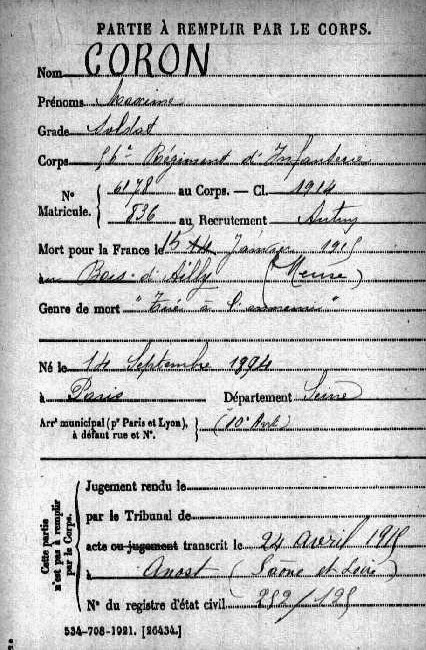 PARTIE À REMPLIR PAR LE CORPS.
Nom CORON
Prénoms Maxime
Grade Soldat
Corps 56e Régiment d'Infanterie
N° Matricule. { 6178 au Corps. — Cl. 1914
836 au Recrutement Autun
Mort pour la France le 15 Janvier 1915
au Bois-d'Ailly (Meuse)
Genre de mort "Tué à l'ennemi"
Né le 14 Septembre 1894
à Paris Département Seine
Arrt municipal (pr Paris et Lyon), à défaut rue et N°. } (10e Ardt)
Cette partie n'est pas à remplir par le Corps.
Jugement rendu le
par le Tribunal de
acte ou jugement transcrit le 24 avril 1915
à Anost (Saône et Loire)
N° du registre d'état civil 252/125
534-708-1921. [26434.]